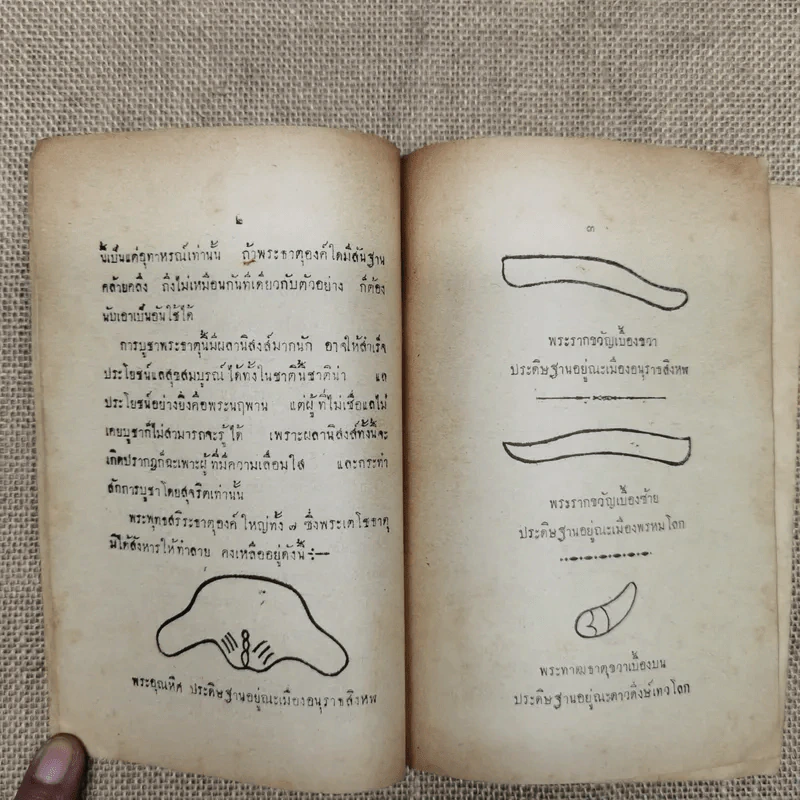 ๒
นี้เป็นแต่อุทาหรณ์เท่านั้น ถ้าพระธาตุองค์ใดมีสันฐาน
คล้ายคลึง ถึงไม่เหมือนกันทีเดียวกับตัวอย่าง ก็ต้อง
นับเอาเป็นอันใช้ได้
การบูชาพระธาตุนี้มีผลานิสงส์มากนัก อาจให้สำเร็จ
ประโยชน์แลสุขสมบูรณ์ได้ทั้งในชาตินี้ชาติน่า แล
ประโยชน์อย่างยิ่งคือพระนฤพาน แต่ผู้ที่ไม่เชื่อแลไม่
เคยบูชาก็ไม่สามารถจะรู้ได้ เพราะผลานิสงส์ทั้งนี้จะ
เกิดปรากฏก็ฉะเพาะผู้ที่มีความเลื่อมใส และกระทำ
สักการบูชาโดยสุจริตเท่านั้น
พระพุทธสรีระธาตุองค์ใหญ่ทั้ง ๗ ซึ่งพระเตโชธาตุ
มิได้สังหารให้ทำลาย คงเหลืออยู่ดังนี้ :—
พระอุณหิศ ประดิษฐานอยู่ณะเมืองอนุราชสิงหฬ
๓
พระรากขวัญเบื้องขวา
ประดิษฐานอยู่ณะเมืองอนุราชสิงหฬ
พระรากขวัญเบื้องซ้าย
ประดิษฐานอยู่ณะเมืองพรหมโลก
พระทาฒธาตุขวาเบื้องบน
ประดิษฐานอยู่ณะดาวดึงษ์เทวโลก